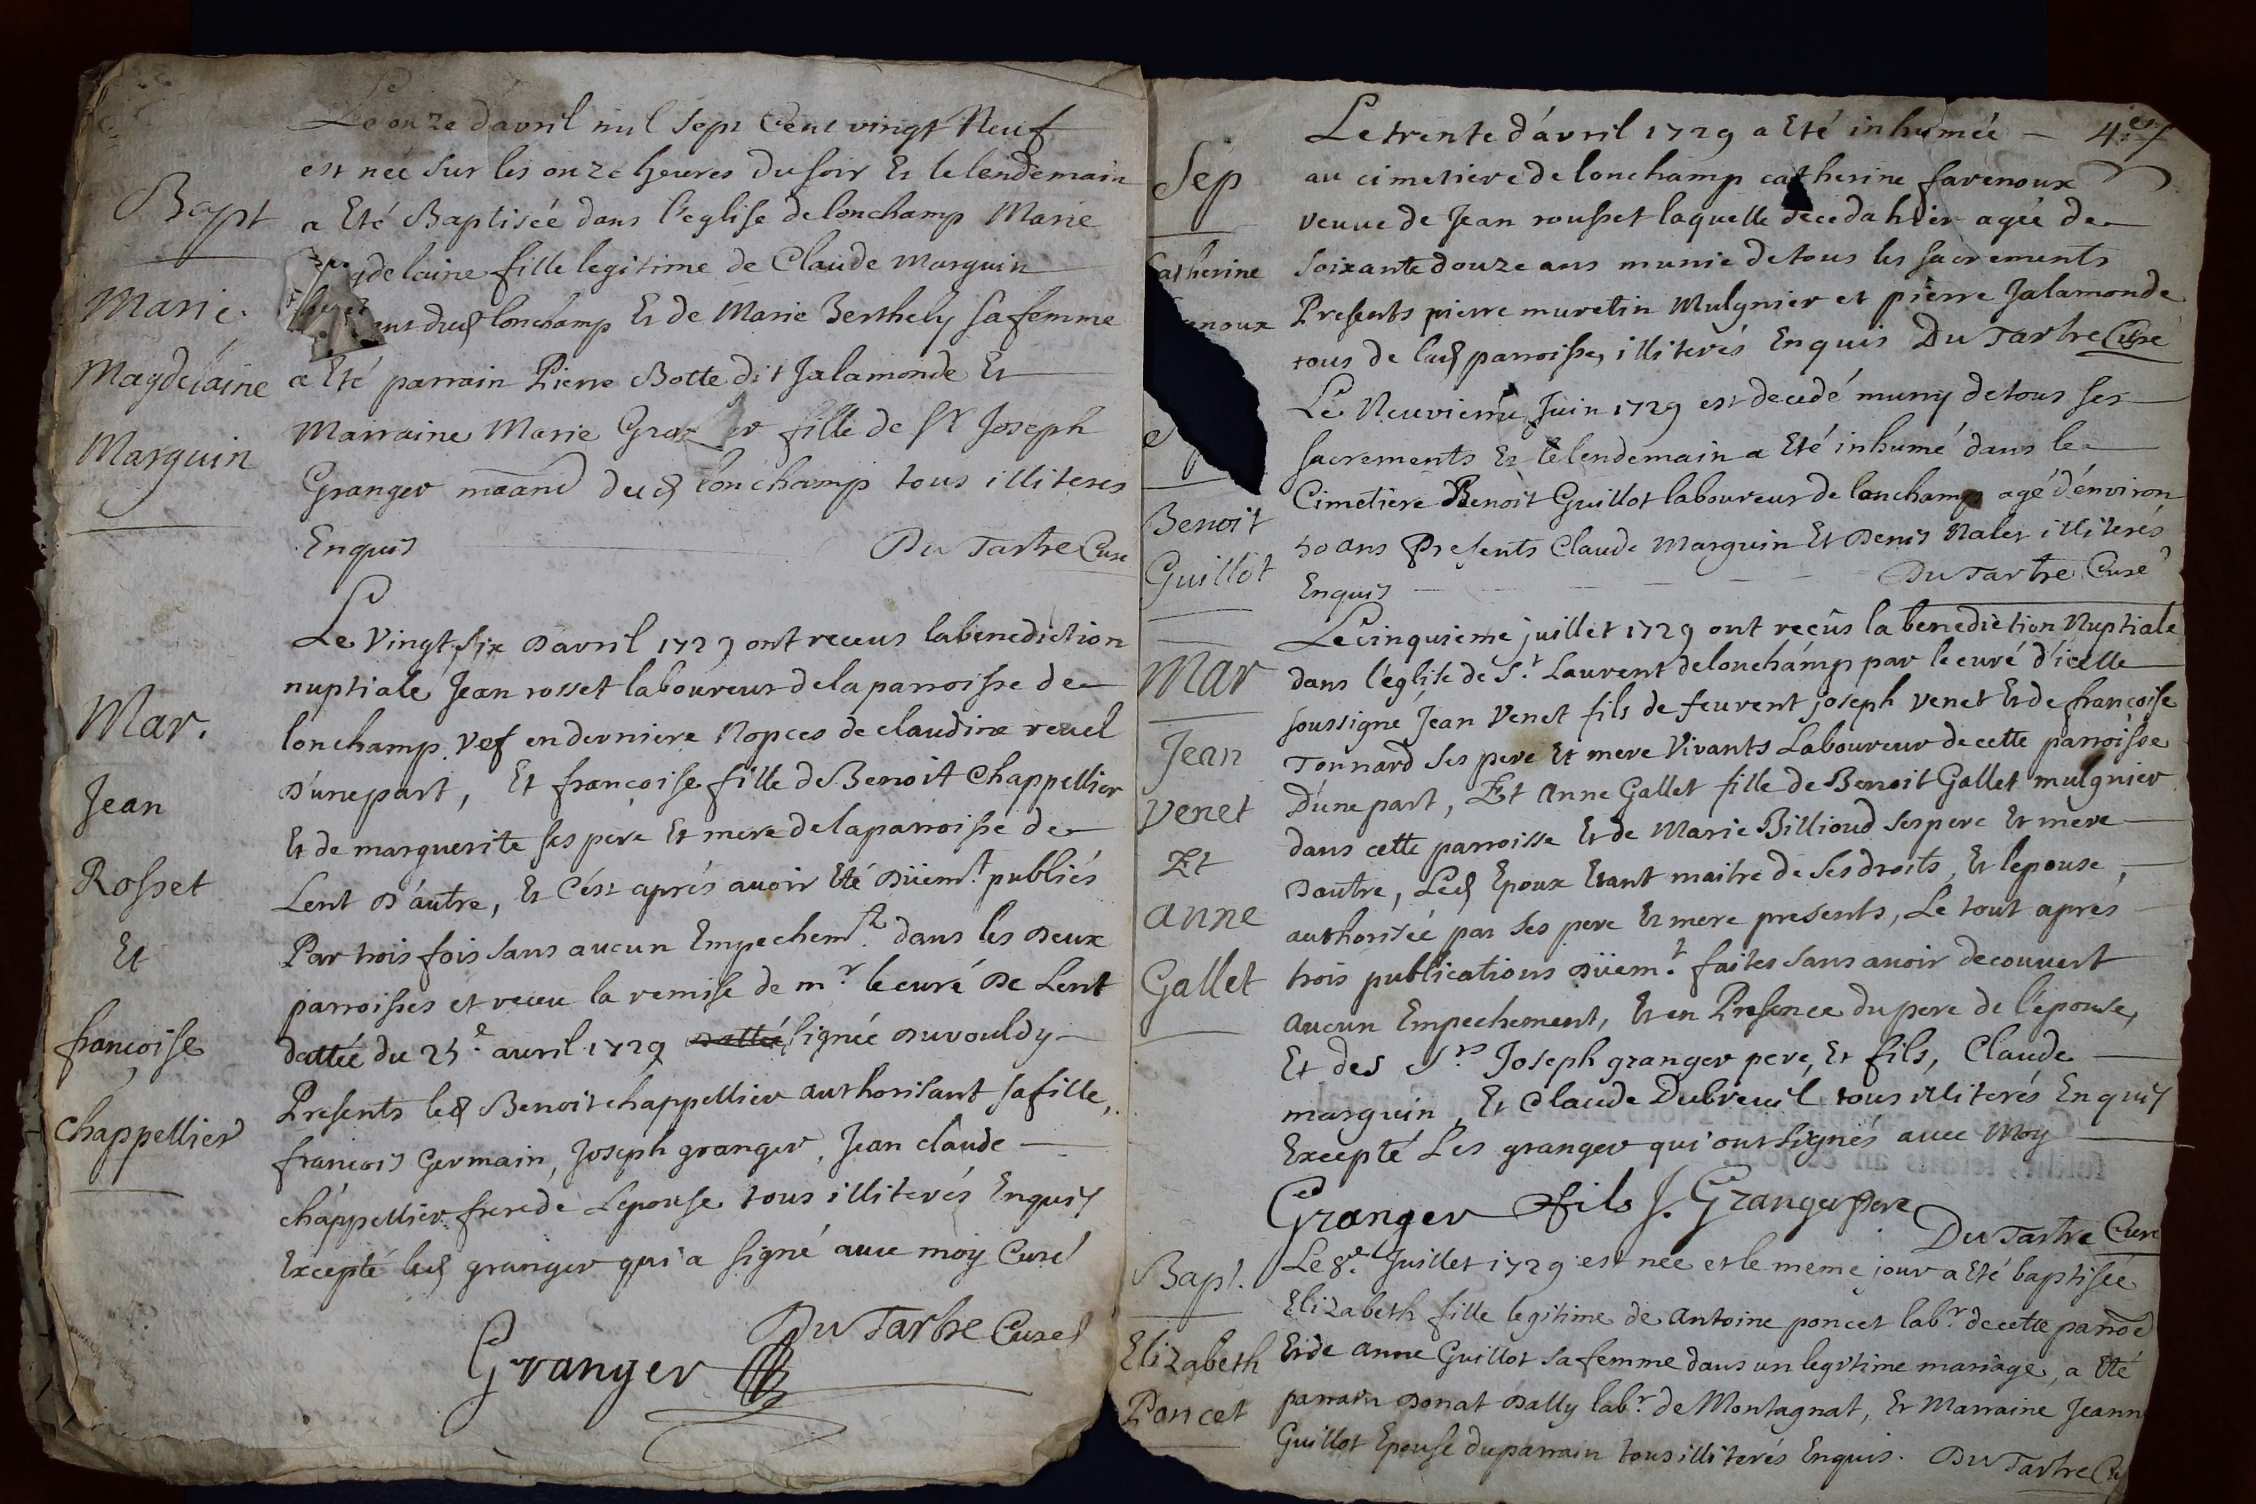 Bapt
Marie
Magdelaine
Marguin
Le onze d'avril mil sept Cent vingt Neuf
est neé sur les onze heures du soir Et le lendemain
a Eté Baptisée dans l'eglise de lonchamp Marie
gdelaine fille legitime de Claude Marguin
dud lonchamp Et de Marie Berthely sa femme
a Eté parrain Pierre Botte dit Jalamonde Et
Marraine Marie fille de Sr Joseph
Granger dud lonchamp tous illiteres
Enquis Du Tartre Curé
Mar.
Jean
Rosset
Et
françoise
Chappellier
Le Vingt six D'avril 1729 ont receus la benediction
nuptiale Jean rosset laboureur de la parroisse de
lonchamp Vef en derniere Nopces de claudine revel
D'une part, Et françoise fille de Benoit Chappellier
Et de marguerite ses pere Et mere de la parroisse de
Lent D'autre, Et C'est aprés avoir Eté Düem.t publiés
Par trois fois sans aucun Empechem.t dans les Deux
parroisses et receu la remise de m.r le curé De Lent
dattée du 25.e avril 1729 signée Duvouldy
Presents led Benoit chappellier authorisant sa fille,
francois Germain, Joseph granger, Jean claude
chappellier frere de Lepouse tous illiterés Enquis
Excepté led granger qui a signé avec moy Curé
Du Tartre Curé
Granger
4.e
Sep
Catherine
enoux
Le trente d'avril 1729 a Eté inhumée
au cimetiere de lonchamp catherine favenoux
veuve de Jean rousset laquelle deceda hier agée de
soixante douze ans munie de tous les sacrements
Presents pierre muretin Mulgnier et pierre Jalamonde
tous de lad parroisse, illiterés Enquis Du Tartre Curé
Benoit
Guillot
Le Neuvieme Juin 1729 est decedé muny de tous ses
sacrements Et le lendemain a Eté inhumé dans le
Cimetiere Benoit Guillot laboureur de lonchamp agé d'environ
50 ans Presents Claude Marguin Et Denis Nalet illiterés
Enquis Du Tartre Curé
Mar
Jean
Venet
Et
Anne
Gallet
Le cinquieme juillet 1729 ont reçûs la benediction Nuptiale
dans l'église de S.t Laurent de lonchamp par le curé d'icelle
soussigné Jean Venet fils de feu vent joseph venet Et de françoise
Tonnard ses pere Et mere Vivants Laboureur de cette parroisse
D'une part, Et Anne Gallet fille de Benoit Gallet mulgnier
dans cette parroisse Et de Marie Billioud ses pere Et mere
D'autre, Led Epoux Etant maitre de ses droits, Et lepouse,
authorisée par ses pere Et mere presents, Le tout aprés
trois publications Düem.t faites sans avoir decouvert
aucun Empechement, Et en Presence du pere de l'épouse,
Et des S.rs Joseph granger pere, Et fils, Claude
marguin, Et Claude Dubreuil tous illiterés Enquis
Excepté Les granger qui ont signés avec Moy
Granger fils J. Granger pere
Du Tartre Curé
Bap.t
Elizabeth
Poncet
Le 8.e Juillet 1729 est neé et le meme jour a Eté baptisée
Elizabeth fille legitime de Antoine poncet lab.r de cette
Et de Anne Guillot sa femme dans un legitime mariage, a Eté
parrain Donat Dally lab.r de Montagnat, Et Marraine Jeann
Guillot Epouse du parrain tous illiterés Enquis. Du Tartre